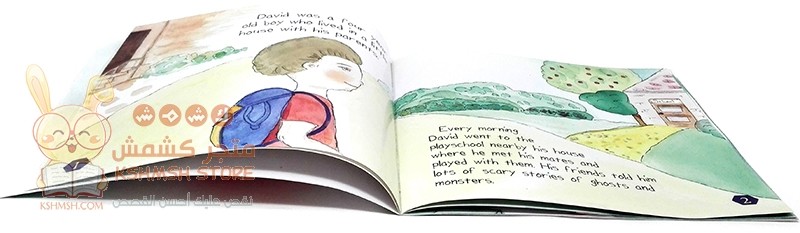 David was a four year
old boy who lived in a little
house with his parents.
1
كشمش
متجر كشمش
KSHMSH STORE
KSHMSH.COM
نقص عليك أحسن القصص
Every morning
David went to the
playschool nearby his house
where he met his mates and
played with them. His friends told him
lots of scary stories of ghosts and
monsters.
2